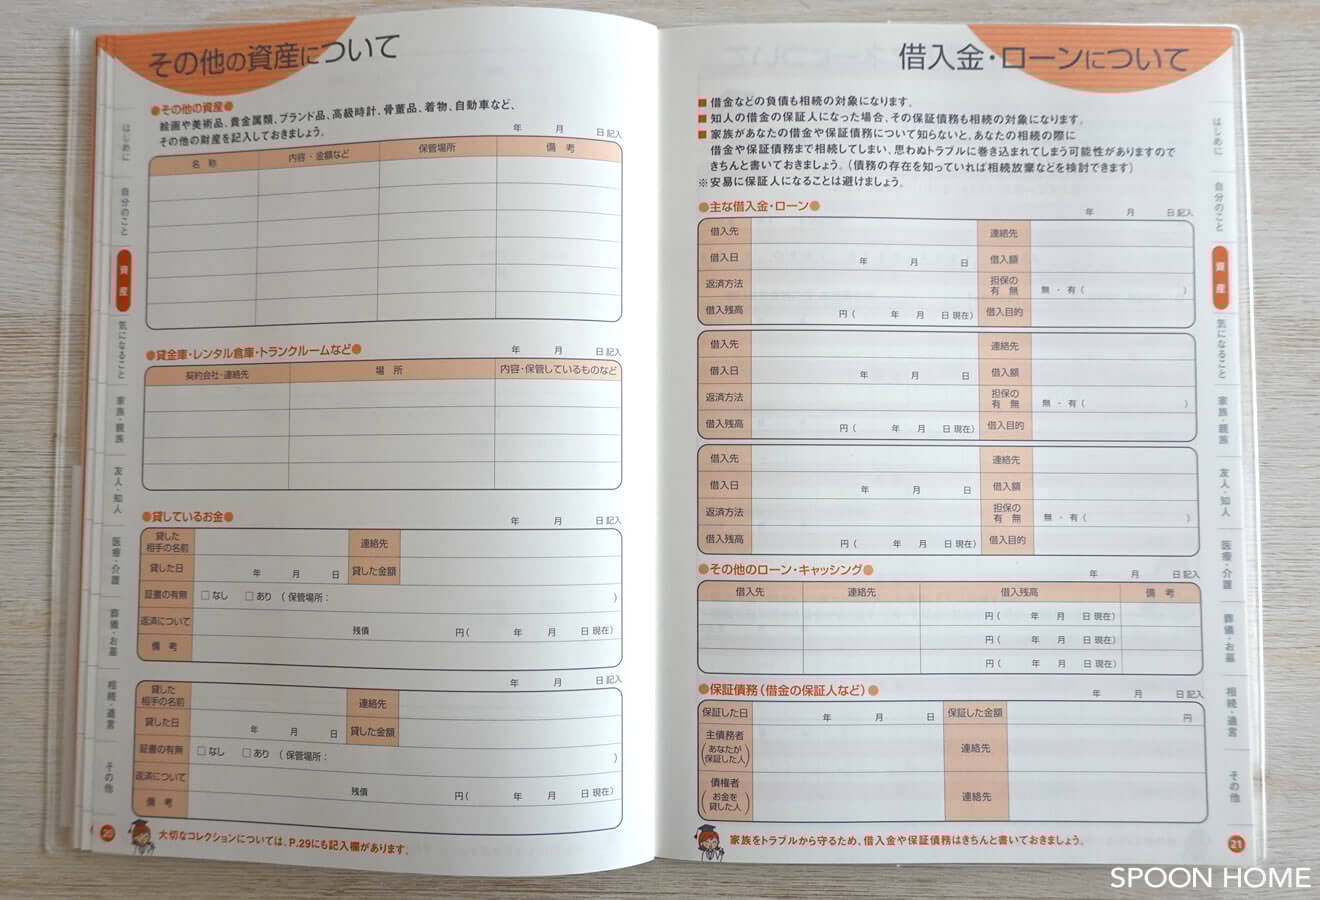 その他の資産について
●その他の資産●
絵画や美術品、貴金属類、ブランド品、高級時計、骨董品、着物、自動車など、
その他の財産を記入しておきましょう。
年 月 日記入
名 称 内容・金額など 保管場所 備 考
●貸金庫・レンタル倉庫・トランクルームなど●
年 月 日記入
契約会社・連絡先 場 所 内容・保管しているものなど
●貸しているお金●
年 月 日記入
貸した
相手の名前 連絡先
貸した日 年 月 日 貸した金額
証書の有無 □なし □あり (保管場所: )
返済について 残債 円( 年 月 日 現在)
備 考
年 月 日記入
貸した
相手の名前 連絡先
貸した日 年 月 日 貸した金額
証書の有無 □なし □あり (保管場所: )
返済について 残債 円( 年 月 日 現在)
備 考
大切なコレクションについては、P.29にも記入欄があります。
20
はじめに
自分のこと
資産
気になること
家族・親族
友人・知人
医療・介護
葬儀・お墓
相続・遺言
その他
借入金・ローンについて
■借金などの負債も相続の対象になります。
■知人の借金の保証人になった場合、その保証債務も相続の対象になります。
■家族があなたの借金や保証債務について知らないと、あなたの相続の際に
借金や保証債務まで相続してしまい、思わぬトラブルに巻き込まれてしまう可能性がありますので
きちんと書いておきましょう。(債務の存在を知っていれば相続放棄などを検討できます)
※安易に保証人になることは避けましょう。
●主な借入金・ローン●
年 月 日記入
借入先 連絡先
借入日 年 月 日 借入額
返済方法 担保の有 無 無・有( )
借入残高 円( 年 月 日 現在) 借入目的
借入先 連絡先
借入日 年 月 日 借入額
返済方法 担保の有 無 無・有( )
借入残高 円( 年 月 日 現在) 借入目的
借入先 連絡先
借入日 年 月 日 借入額
返済方法 担保の有 無 無・有( )
借入残高 円( 年 月 日 現在) 借入目的
●その他のローン・キャッシング●
年 月 日記入
借入先 連絡先 借入残高 備 考
円( 年 月 日 現在)
円( 年 月 日 現在)
円( 年 月 日 現在)
●保証債務(借金の保証人など)●
年 月 日記入
保証した日 年 月 日 保証した金額 円
主債務者
(あなたが
保証した人) 連絡先
債権者
(お金を
貸した人) 連絡先
家族をトラブルから守るため、借入金や保証債務はきちんと書いておきましょう。
21
はじめに
自分のこと
資産
気になること
家族・親族
友人・知人
医療・介護
葬儀・お墓
相続・遺言
その他
SPOON HOME